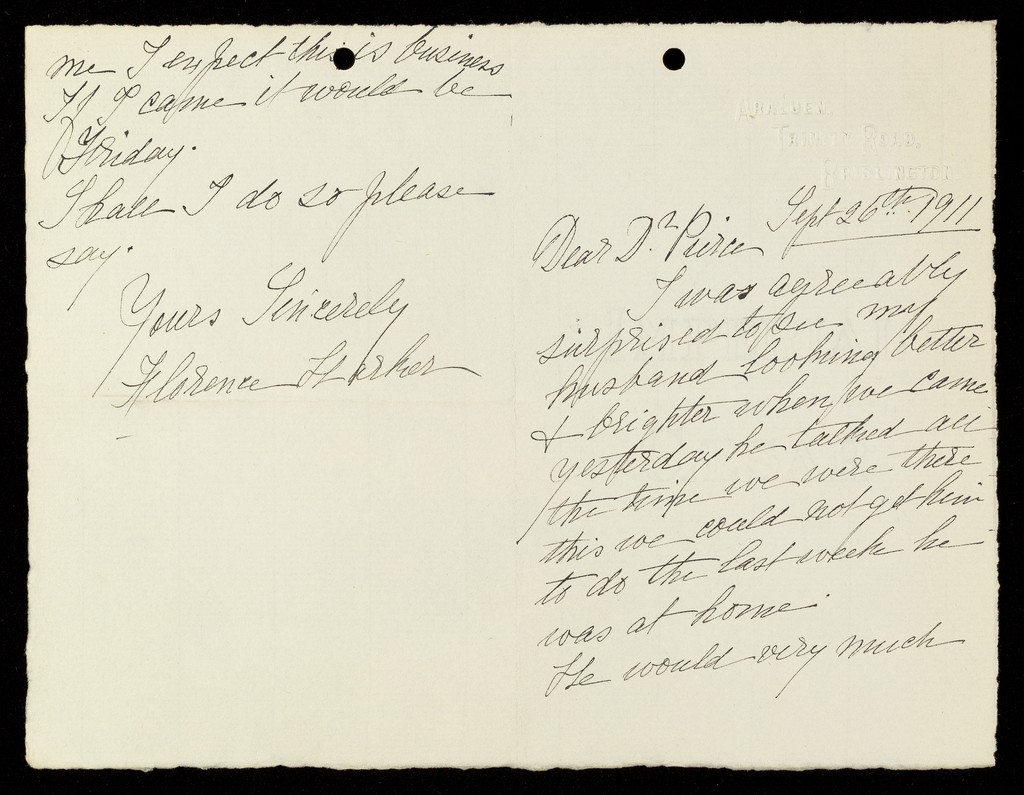 Trinity Road,
Bridlington
Sept 26th. 1911
Dear Dr Pierce
I was agreeably
surprised to see my
husband looking better
& brighter when we came
yesterday he talked all
the time we were there
this we could not get him
to do the last week he
was at home.
He would very much
me I expect this is business
If I came it would be
Friday.
Shall I do so please
say.
Yours Sincerely
Florence Harker